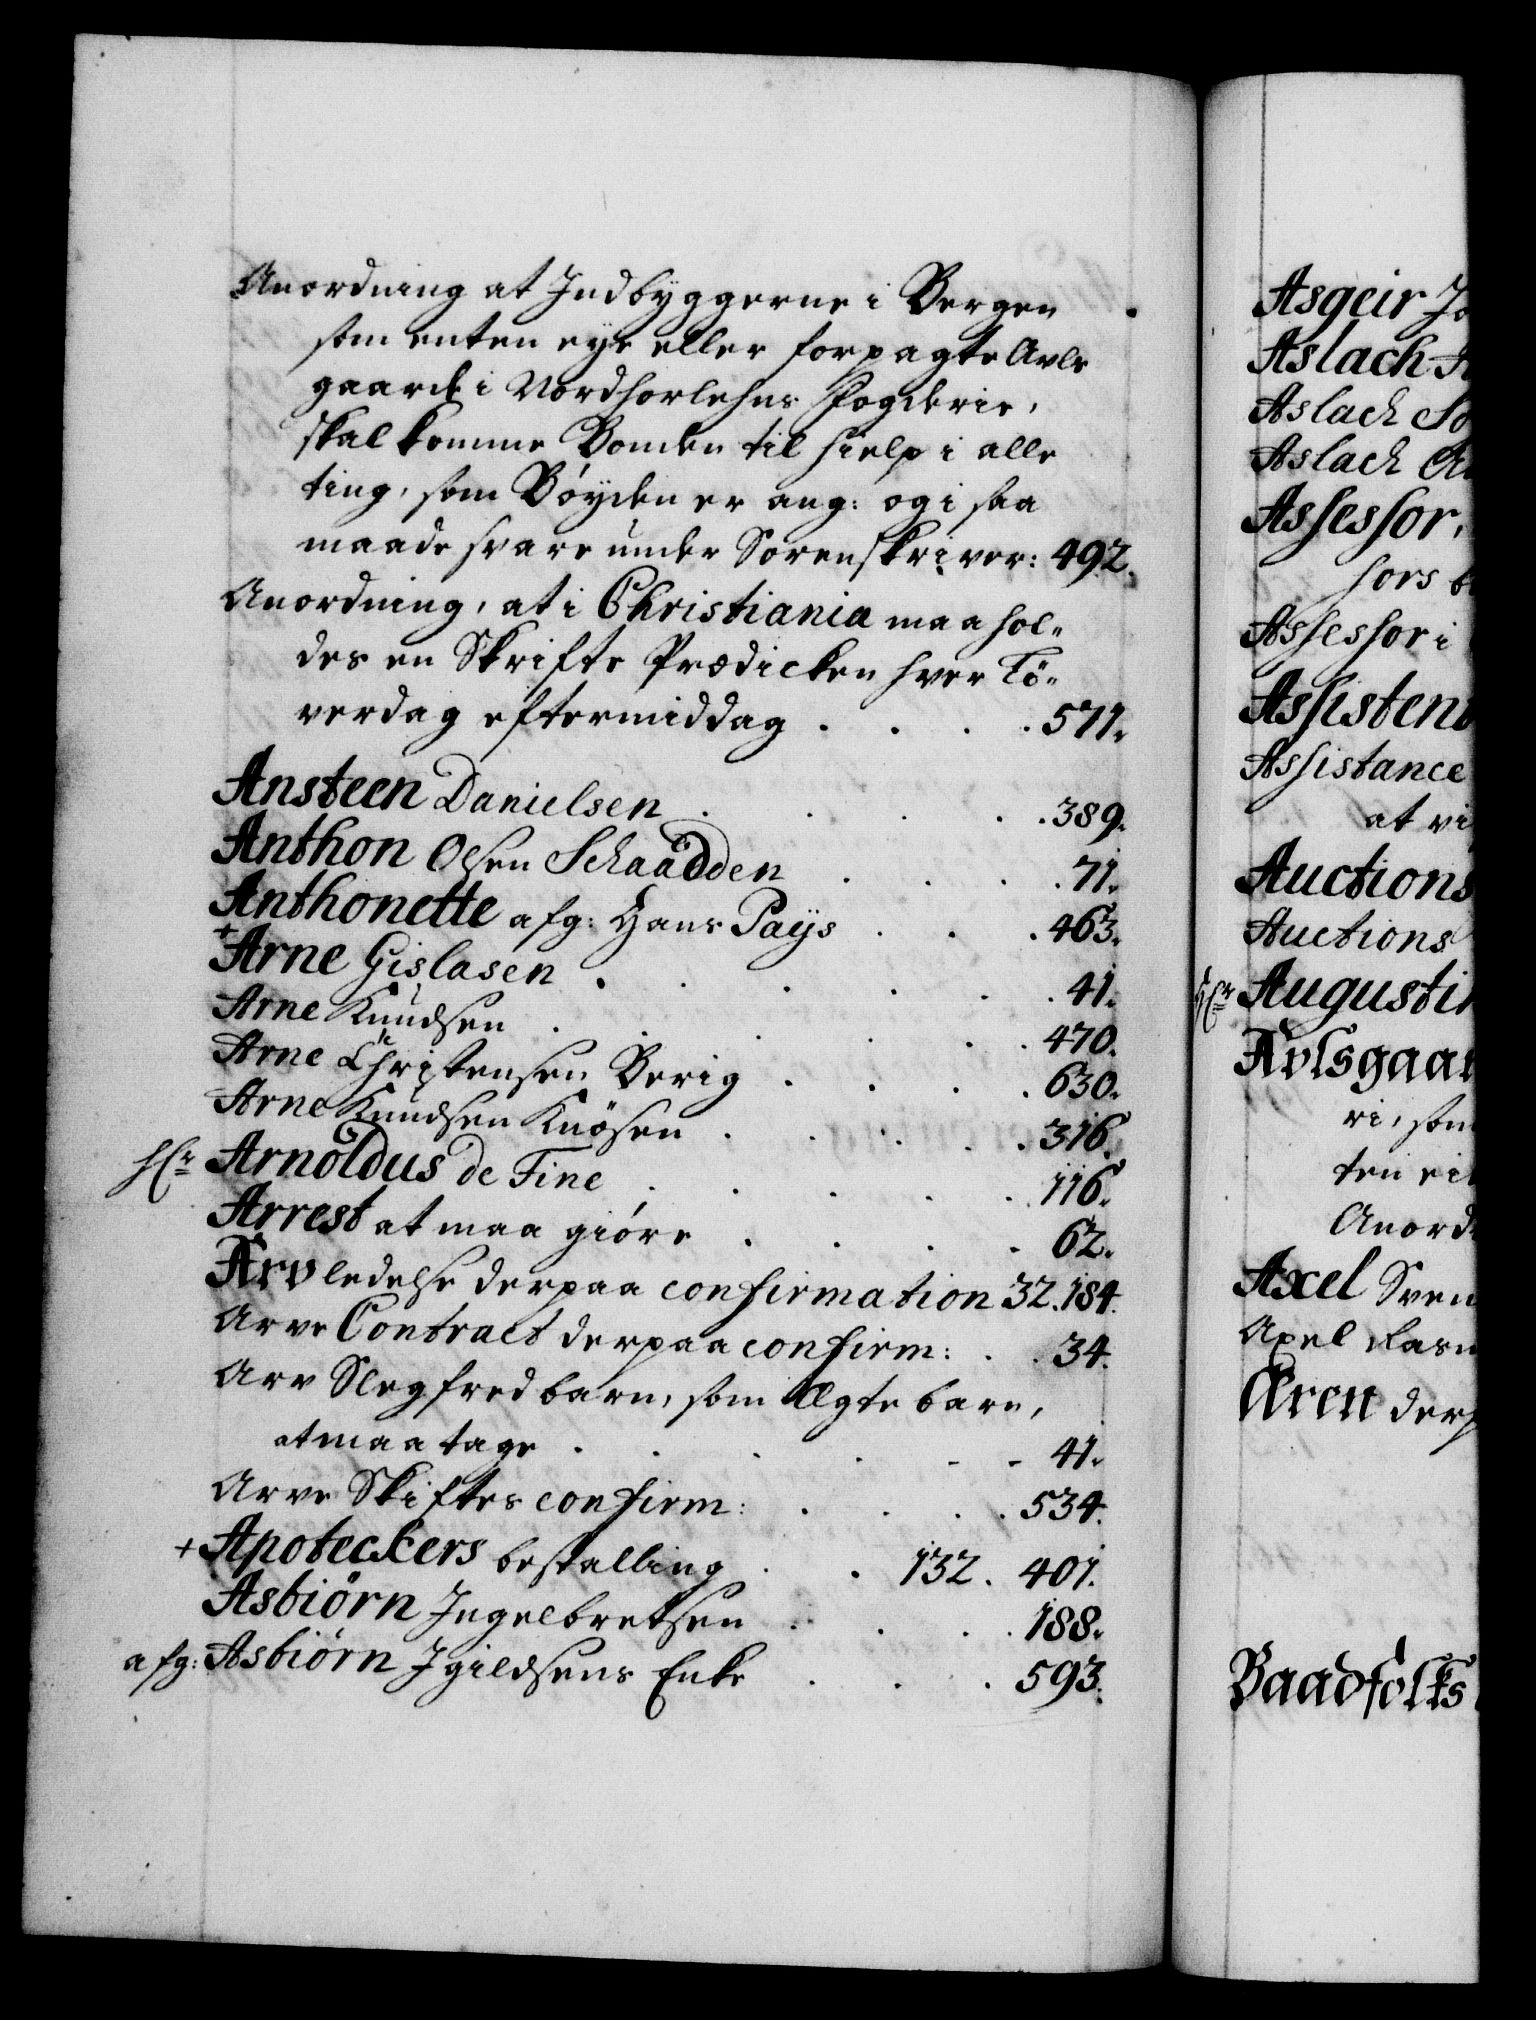 Anordning at Indbyggerne i Bergen
som enten eye eller forpagte Avls
gaarde i Nordhorlehns Fogderie,
skal komme Bonden til hielp i alle
ting, som Bøyden er ang: og i saa
maade svare under Sorenskriver: 492.
Anordning, at i Christiania maa hol„
des en Skrifte Prædicken hver Lö„
verdag eftermiddag . . . . 571.
Ansteen Danielsen . . . . 389.
Anthon Olsen Schaadden . . . . 71.
Anthonette afg: Hans Paÿs . . . 463.
+ Arne Gislasen . . . . . 41.
Arne Knudsen . . . . . 470.
Arne Christensen Berig . . . . 630.
Arne Knudsen Knösen . . . . 316.
Hr Arnoldus de Fine . . . . . 116.
Arrest at maa giöre . . . . 62.
Arvledelse derpaa confirmation 32. 184.
Arve Contract derpaa confirm: . . 34.
Arv Slegfredbarn, som Ægte barn,
at maa tage . . . . . 41.
Arve Skiftes confirm: . . . . 534.
+ Apoteckers bestalling . . 132. 401.
Asbiörn Ingelbretsen . . . . 188.
afg: Asbiörn Igildsens Enke . . . 593.
Asgeir Jo
Aslach
Aslach So
Aslach
Assessor,
sors
Assessor i
Assistent
Assistance
at vi
Auctions
Auctions
Hr Augustin
Avlsgaar
ri, som
ten ei
Anord
Axel Sven
Axel Rasm
Æren derp
Baadfolks